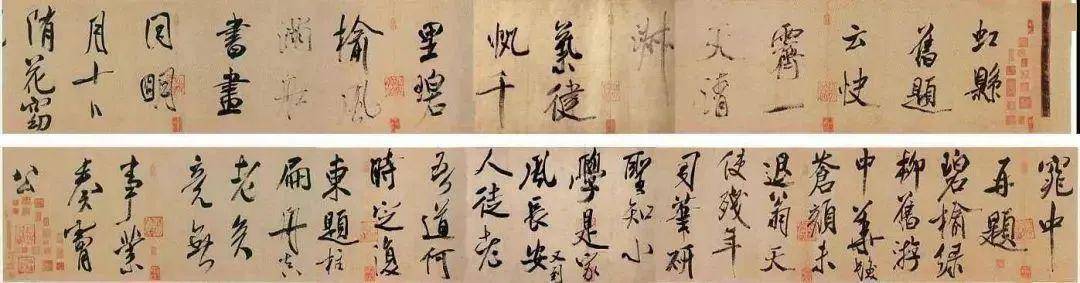 虹縣
舊題
云快
霽一
天清
淑
氣健
帆千
里碧
榆風
滿舡
書畫
同明
月十日
隋花窈
窕中
再題
碧榆綠
柳舊遊
中華髮
蒼顏未
退翁天
使殘年
司筆研
聖知小
學是家
風長安又到
人徒老
吾道何
時定復
東題柱
扁舟真
老矣
竟無
事業
奏膚
公